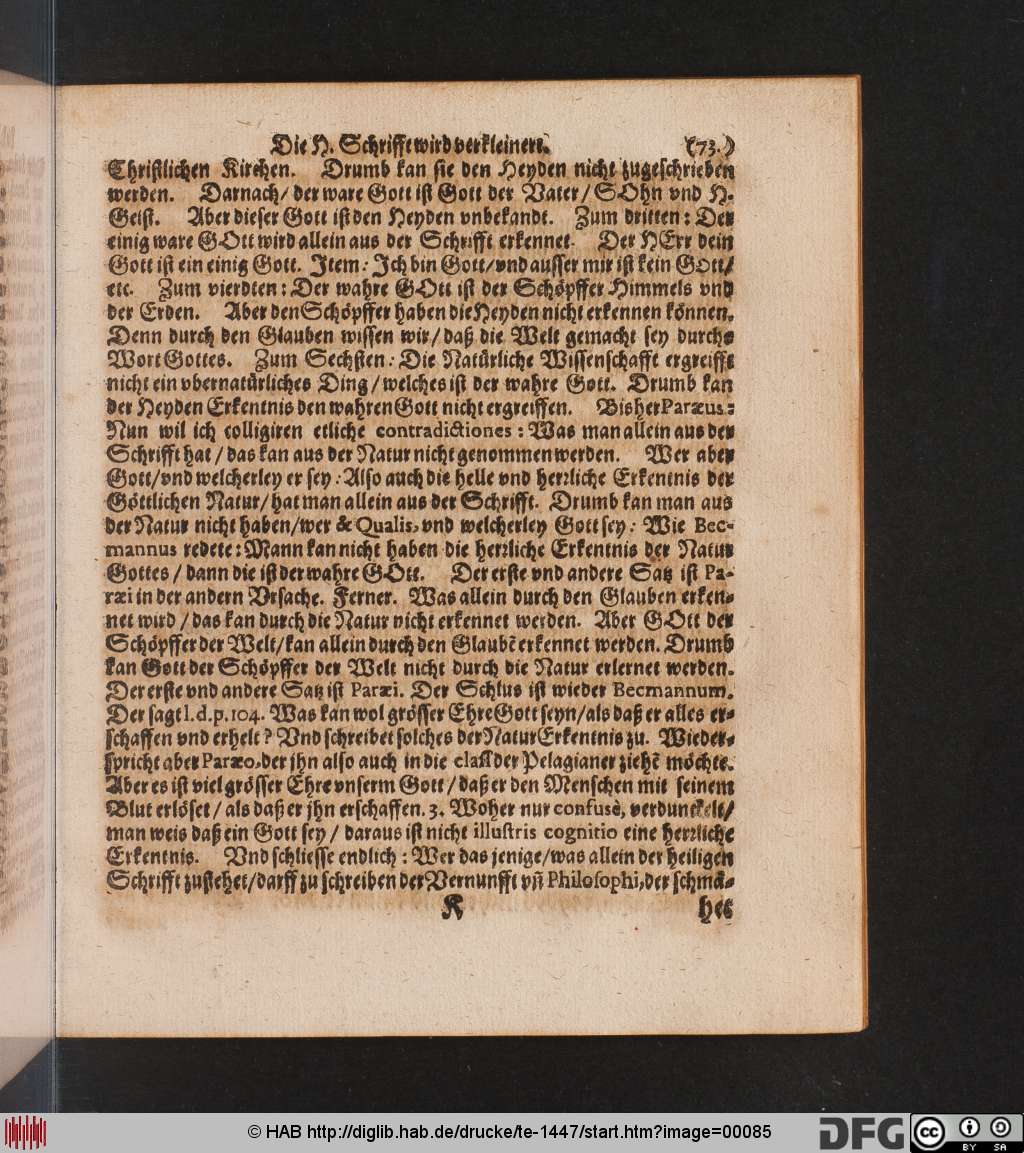 Die H. Schrifft wird verkleinert. (73.)
Christlichen Kirchen. Drumb kan sie den Heyden nicht zugeschrieben
werden. Darnach/ der ware Gott ist Gott der Vater/ SOhn vnd H.
Geist. Aber dieser Gott ist den Heyden vnbekandt. Zum dritten: Der
einig ware GOtt wird allein aus der Schrifft erkennet. Der HErr dein
Gott ist ein einig Gott. Item: Ich bin Gott/ vnd ausser mir ist kein GOtt/
etc. Zum vierdten: Der wahre GOtt ist der Schöpffer Himmels vnd
der Erden. Aber den Schöpffer haben die Heyden nicht erkennen können.
Denn durch den Glauben wissen wir/ daß die Welt gemacht sey durchs
Wort Gottes. Zum Sechsten: Die Natürliche Wissenschafft ergreifft
nicht ein vbernatürliches Ding/ welches ist der wahre Gott. Drumb kan
der Heyden Erkentnis den wahren Gott nicht ergreiffen. Bisher Paræus:
Nun wil ich colligiren etliche contradictiones: Was man allein aus der
Schrifft hat/ das kan aus der Natur nicht genommen werden. Wer aber
Gott/ vnd welcherley er sey: Also auch die helle vnd herzliche Erkentnis der
Göttlichen Natur/ hat man allein aus der Schrifft. Drumb kan man aus
der Natur nicht haben/ wer & Qualis, vnd welcherley Gott sey: Wie Bec-
mannus redete: Mann kan nicht haben die herzliche Erkentnis der Natur
Gottes/ dann die ist der wahre GOtt. Der erste vnd andere Satz ist Pa-
ræi in der andern Vrsache. Ferner. Was allein durch den Glauben erken-
net wird/ das kan durch die Natur nicht erkennet werden. Aber GOtt der
Schöpffer der Welt/ kan allein durch den Glaubē erkennet werden. Drumb
kan Gott der Schöpffer der Welt nicht durch die Natur erlernet werden.
Der erste vnd andere Satz ist Paræi. Der Schlus ist wieder Becmannum.
Der sagt l. d. p. 104. Was kan wol grösser Ehre Gott seyn/ als daß er alles er-
schaffen vnd erhelt? Vnd schreibet solches der Natur Erkentnis zu. Wieder-
spricht aber Paræo, der jhn also auch in die claß der Pelagianer ziehē möchte.
Aber es ist viel grösser Ehre vnserm Gott/ daß er den Menschen mit seinem
Blut erlöset/ als daß er jhn erschaffen. 3. Woher nur confusè, verdunckelt/
man weis daß ein Gott sey/ daraus ist nicht illustris cognitio eine herzliche
Erkentnis. Vnd schliesse endlich: Wer das jenige/ was allein der heiligen
Schrifft zustehet/ darff zu schreiben der Vernunfft vñ Philosophi, der schmä-
K het
© HAB http://diglib.hab.de/drucke/te-1447/start.htm?image=00085
DFG
cc BY SA